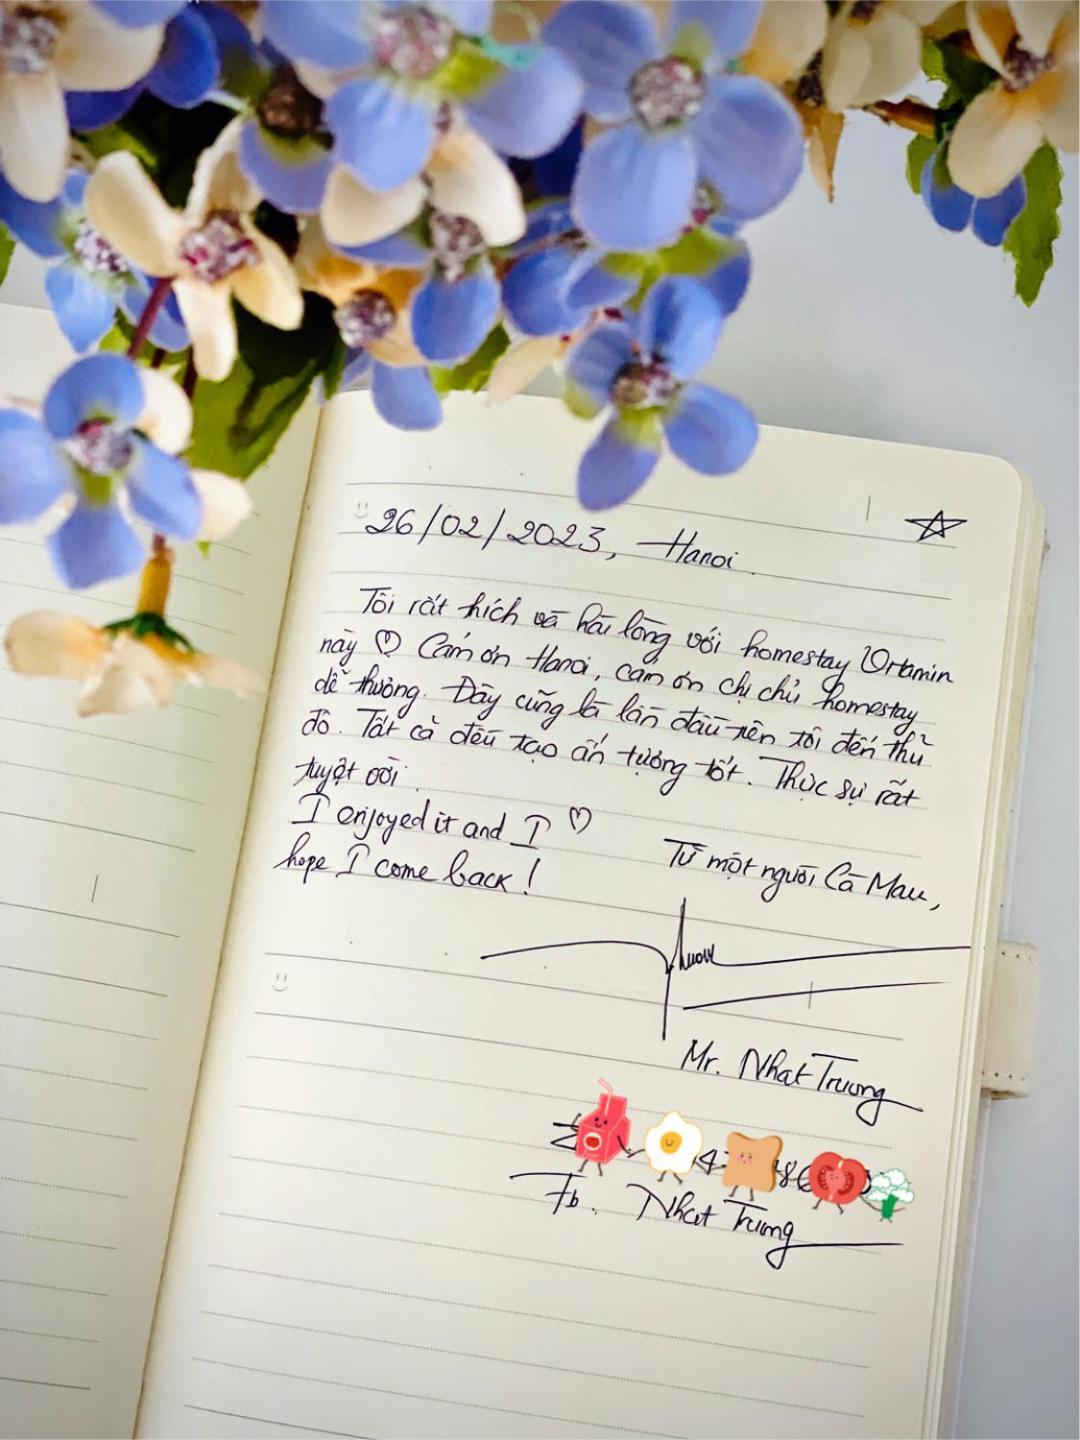 26/02/2023, Hanoi
Tôi rất thích và hài lòng với homestay Vitamin
này ♡ Cám ơn Hanoi, cám ơn chị chủ homestay
dễ thương. Đây cũng là lần đầu tiên tôi đến thủ
đô. Tất cả đều tạo ấn tượng tốt. Thực sự rất
tuyệt vời.
I enjoyed it and I ♡
hope I come back!
Từ một người Cà Mau,
Mr. Nhat Truong
Fb. Nhat Truong